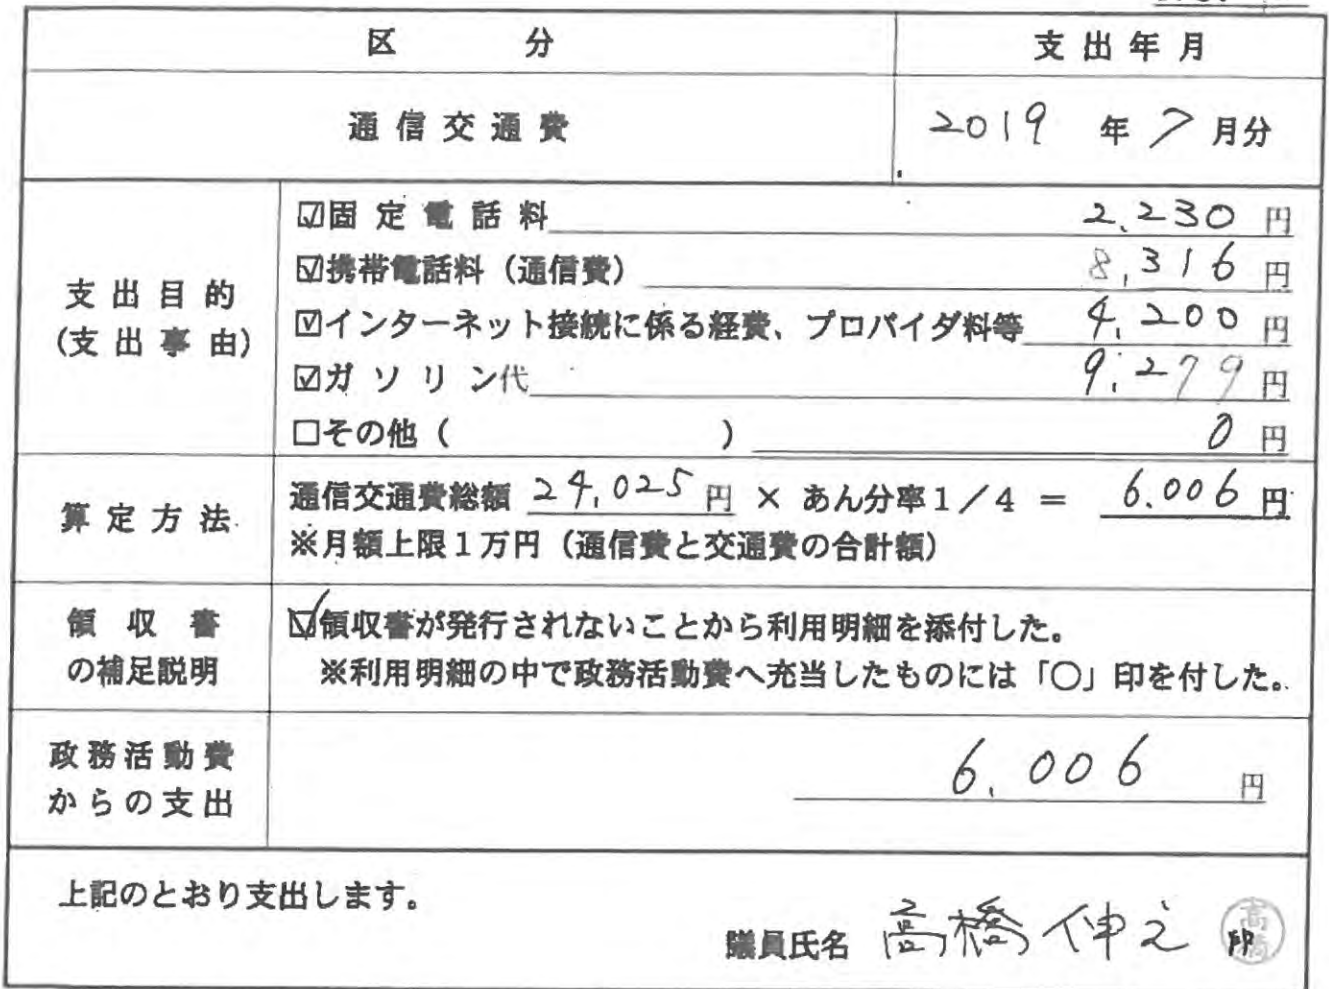 区 分
支出年月
通信交通費
2019 年 7 月分
支出目的
(支出事由)
☑固定電話料 2,230 円
☑携帯電話料（通信費） 8,316 円
☑インターネット接続に係る経費、プロバイダ料等 4,200 円
☑ガソリン代 9,279 円
□その他（ ） 0 円
算定方法
通信交通費総額 24,025 円 × あん分率1／4 ＝ 6.006 円
※月額上限1万円（通信費と交通費の合計額）
領収書
の補足説明
☑領収書が発行されないことから利用明細を添付した。
※利用明細の中で政務活動費へ充当したものには「○」印を付した。
政務活動費
からの支出
6.006 円
上記のとおり支出します。
議員氏名 高橋伸之 印
高橋